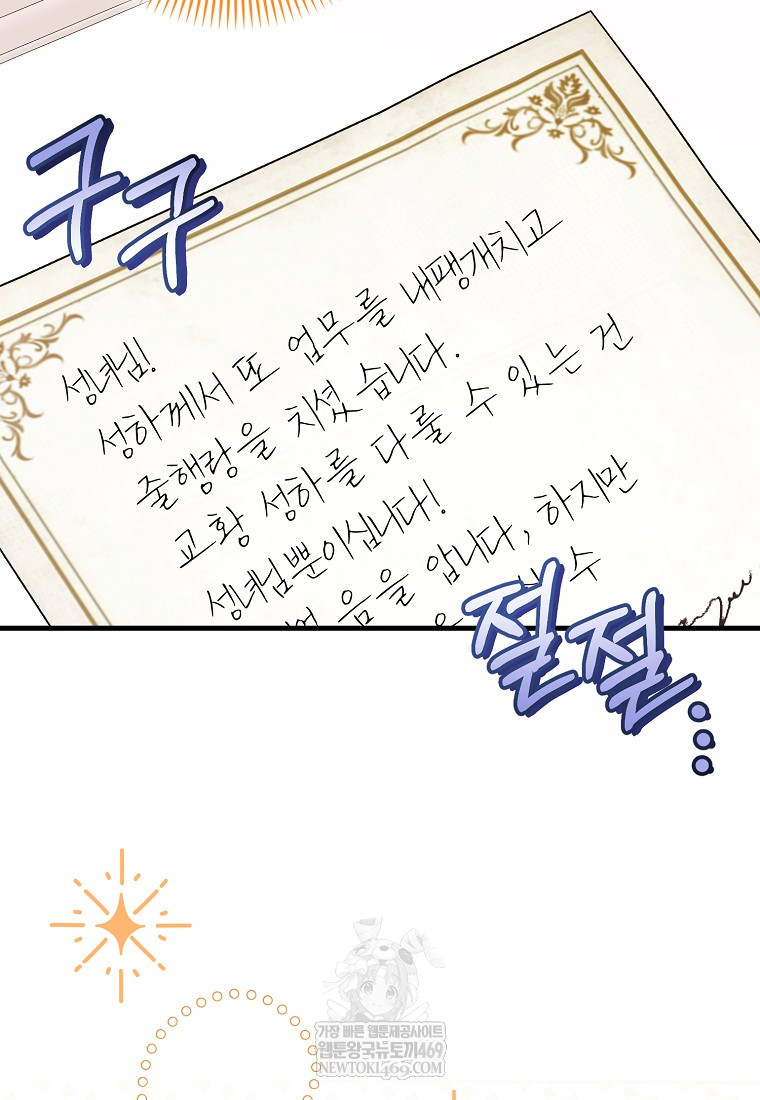 구구
성녀님!
성하께서 또 업무를 내팽개치고
줄행랑을 치셨습니다.
교황 성하를 다룰 수 있는 건
성녀님뿐이십니다!
음을 압니다, 하지만
수
절절...
가장 빠른 웹툰제공사이트
웹툰왕국뉴토끼469
NEWTOKI469.COM